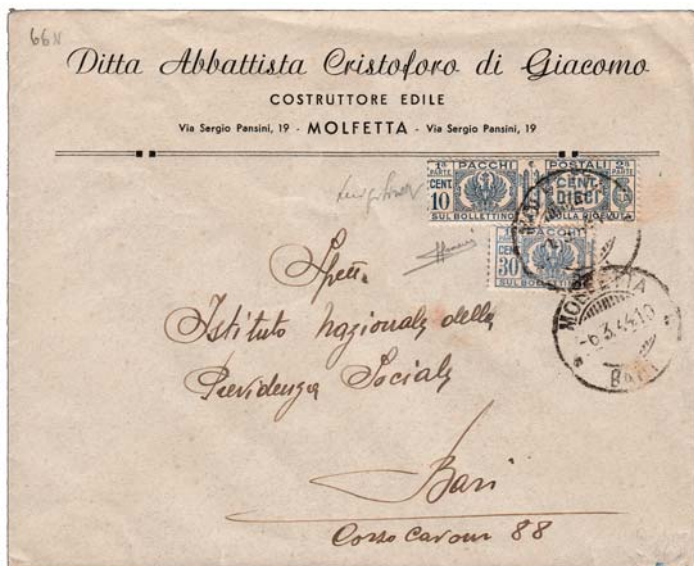 66N
Ditta Abbattista Cristoforo di Giacomo
COSTRUTTORE EDILE
Via Sergio Pansini, 19 - MOLFETTA - Via Sergio Pansini, 19
1ª PARTE PACCHI POSTALI 2ª PARTE
CENT. 10 CENT. DIECI
SUL BOLLETTINO SULLA RICEVUTA
CENT. 30
SUL BOLLETTINO
MOLFETTA
-6.3.44.10
BARI
Spett.
Istituto Nazionale della
Previdenza Sociale
Bari
Corso Cavour 88